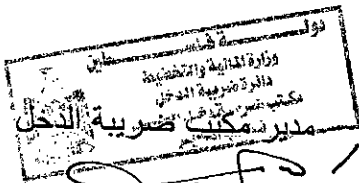 دولة فلسطين
وزارة المالية والتخطيط
دائرة ضريبة الدخل
مدير مكتب ضريبة الدخل